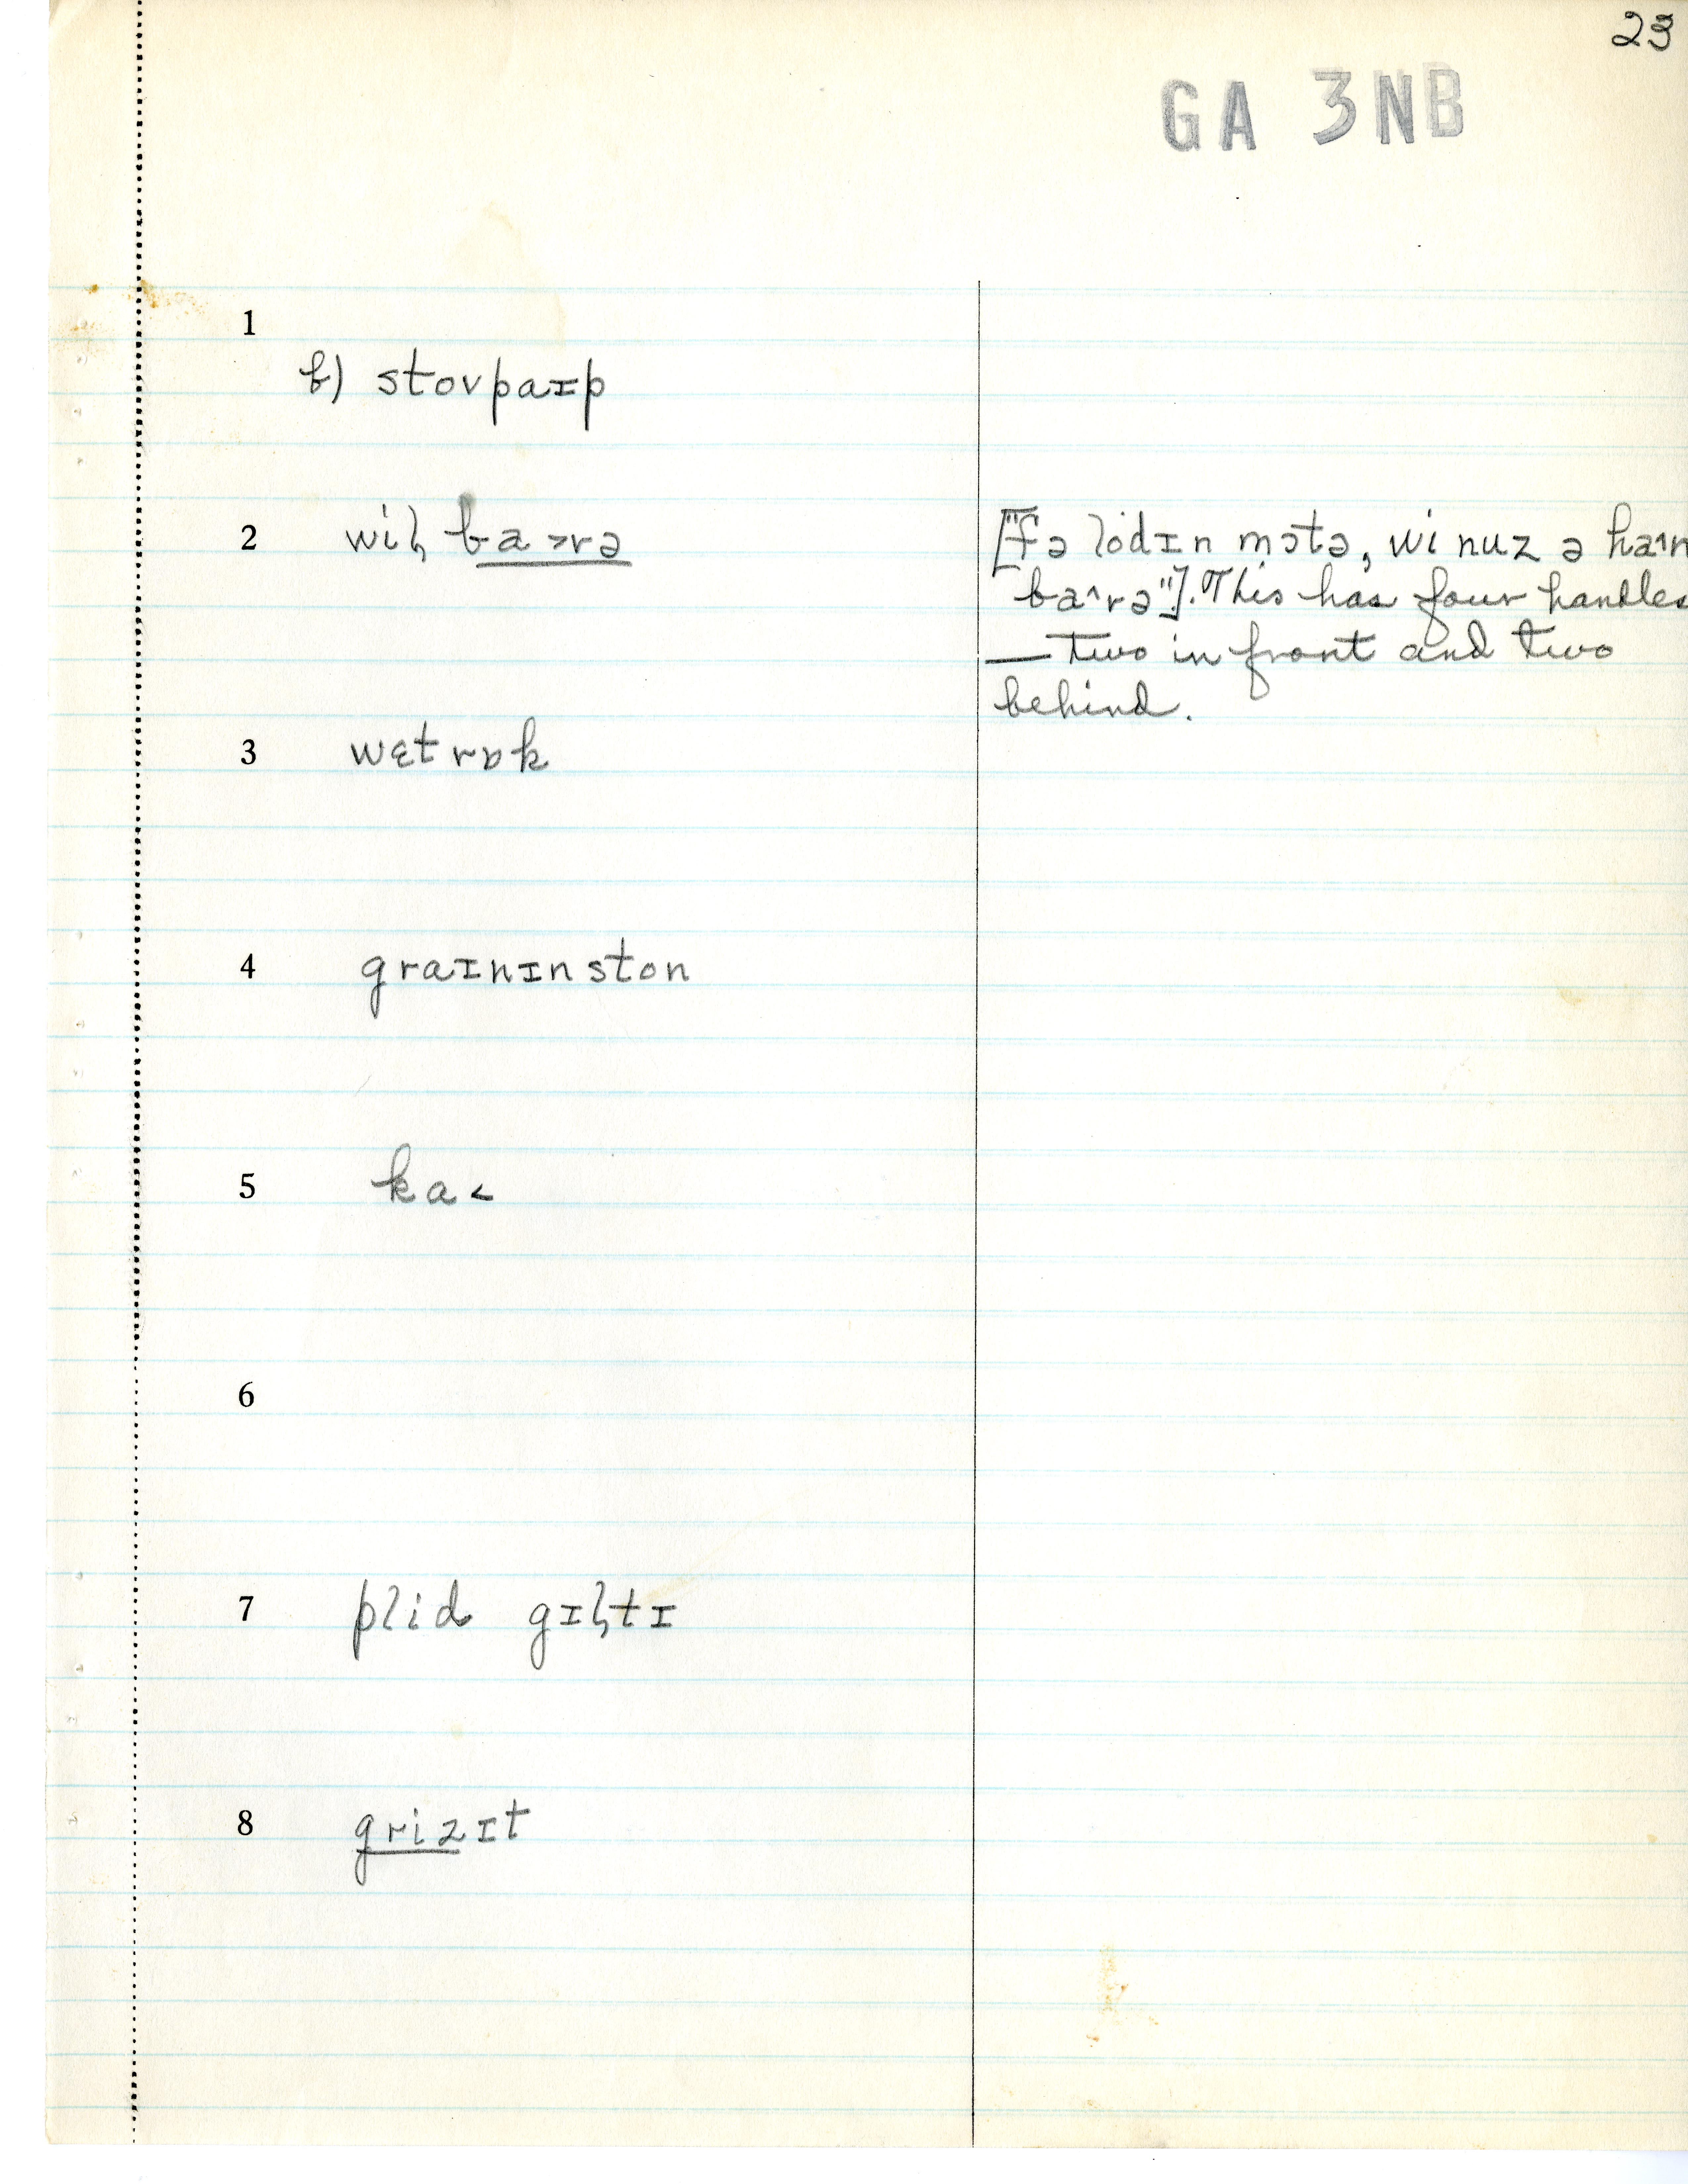 23
GA 3NB
1
b) stovpaɪp
2 wiɫ ba˃rə
["fə lodɪn mɔtə, wi nuz ə ha˄n
ba˄rə"]. This has four handles
— two in front and two
behind.
3 wɛtrɒk
4 graɪnɪnston
5 ka˂
6
7 plid gɪɫtɪ
8 grizɪt